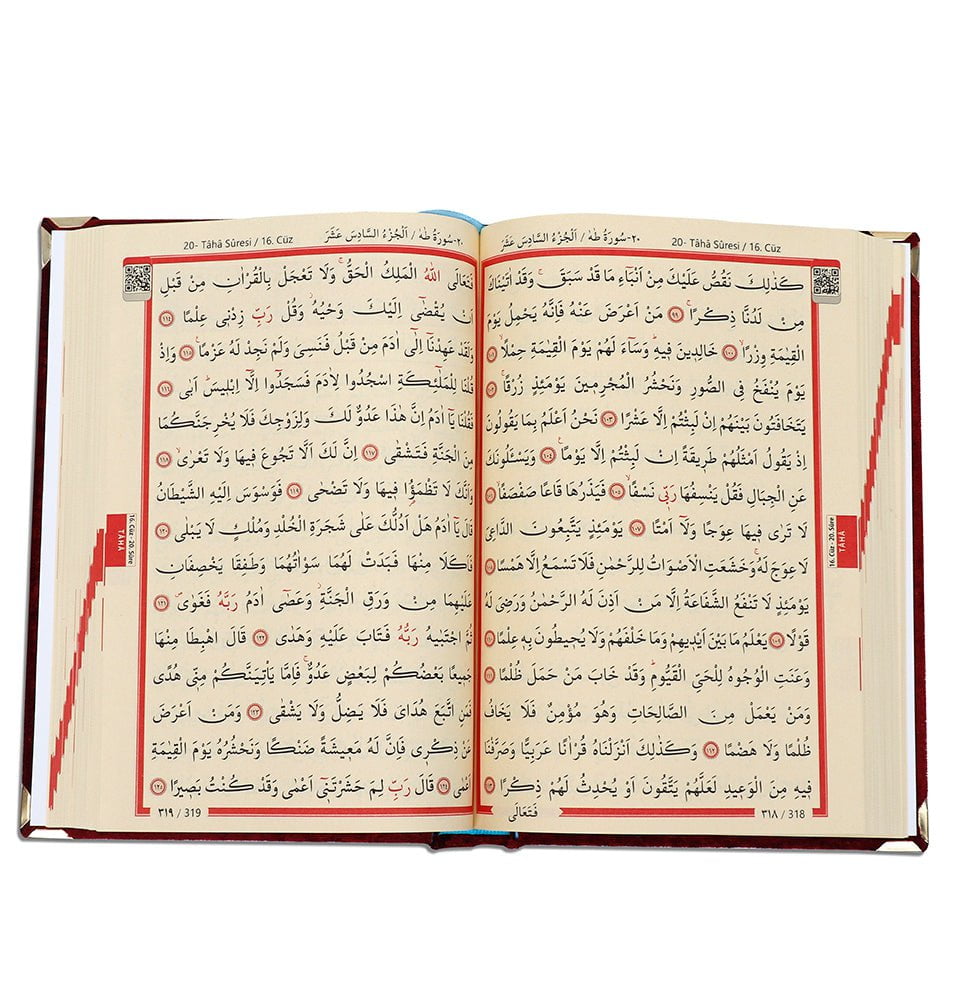 ٢٠-سُورَةُ طٰهٰ / اَلْجُزْءُ السَّادِسَ عَشَرَ
20- Tâhâ Sûresi / 16. Cüz
كَذٰلِكَ نَقُصُّ عَلَيْكَ مِنْ اَنْبَٓاءِ مَا قَدْ سَبَقَۚ وَقَدْ اٰتَيْنَاكَ
مِنْ لَدُنَّا ذِكْرًاۚ ﴿٩٩﴾ مَنْ اَعْرَضَ عَنْهُ فَاِنَّهُ يَحْمِلُ يَوْمَ
الْقِيٰمَةِ وِزْرًاۙ ﴿١٠٠﴾ خَالِدِينَ فِيهِۜ وَسَٓاءَ لَهُمْ يَوْمَ الْقِيٰمَةِ حِمْلًاۙ ﴿١٠١﴾
يَوْمَ يُنْفَخُ فِي الصُّورِ وَنَحْشُرُ الْمُجْرِمِينَ يَوْمَئِذٍ زُرْقًاۚ ﴿١٠٢﴾
يَتَخَافَتُونَ بَيْنَهُمْ اِنْ لَبِثْتُمْ اِلَّا عَشْرًا ﴿١٠٣﴾ نَحْنُ اَعْلَمُ بِمَا يَقُولُونَ
اِذْ يَقُولُ اَمْثَلُهُمْ طَرِيقَةً اِنْ لَبِثْتُمْ اِلَّا يَوْمًا۟ ﴿١٠٤﴾ وَيَسْـَٔلُونَكَ
عَنِ الْجِبَالِ فَقُلْ يَنْسِفُهَا رَبِّي نَسْفًاۙ ﴿١٠٥﴾ فَيَذَرُهَا قَاعًا صَفْصَفًاۙ ﴿١٠٦﴾
لَا تَرٰى فِيهَا عِوَجًا وَلَٓا اَمْتًاۜ ﴿١٠٧﴾ يَوْمَئِذٍ يَتَّبِعُونَ الدَّاعِيَ
لَا عِوَجَ لَهُۚ وَخَشَعَتِ الْاَصْوَاتُ لِلرَّحْمٰنِ فَلَا تَسْمَعُ اِلَّا هَمْسًا ﴿١٠٨﴾
يَوْمَئِذٍ لَا تَنْفَعُ الشَّفَاعَةُ اِلَّا مَنْ اَذِنَ لَهُ الرَّحْمٰنُ وَرَضِيَ لَهُ
قَوْلًا ﴿١٠٩﴾ يَعْلَمُ مَا بَيْنَ اَيْدِيهِمْ وَمَا خَلْفَهُمْ وَلَا يُحِيطُونَ بِهِ عِلْمًا ﴿١١٠﴾
وَعَنَتِ الْوُجُوهُ لِلْحَيِّ الْقَيُّومِۜ وَقَدْ خَابَ مَنْ حَمَلَ ظُلْمًا ﴿١١١﴾
وَمَنْ يَعْمَلْ مِنَ الصَّالِحَاتِ وَهُوَ مُؤْمِنٌ فَلَا يَخَافُ
ظُلْمًا وَلَا هَضْمًا ﴿١١٢﴾ وَكَذٰلِكَ اَنْزَلْنَاهُ قُرْاٰنًا عَرَبِيًّا وَصَرَّفْنَا
فِيهِ مِنَ الْوَعِيدِ لَعَلَّهُمْ يَتَّقُونَ اَوْ يُحْدِثُ لَهُمْ ذِكْرًا ﴿١١٣﴾
فَتَعَالَى
٣١٨ / 318
16. Cüz - 20. Sûre
TÂHÂ
٢٠-سُورَةُ طٰهٰ / اَلْجُزْءُ السَّادِسَ عَشَرَ
20- Tâhâ Sûresi / 16. Cüz
فَتَعَالَى اللّٰهُ الْمَلِكُ الْحَقُّۚ وَلَا تَعْجَلْ بِالْقُرْاٰنِ مِنْ قَبْلِ
اَنْ يُقْضٰٓى اِلَيْكَ وَحْيُهُۘ وَقُلْ رَبِّ زِدْنِي عِلْمًا ﴿١١٤﴾
وَلَقَدْ عَهِدْنَٓا اِلٰٓى اٰدَمَ مِنْ قَبْلُ فَنَسِيَ وَلَمْ نَجِدْ لَهُ عَزْمًا۟ ﴿١١٥﴾ وَاِذْ
قُلْنَا لِلْمَلٰٓئِكَةِ اسْجُدُوا لِاٰدَمَ فَسَجَدُٓوا اِلَّٓا اِبْلِيسَۜ اَبٰى ﴿١١٦﴾
فَقُلْنَا يَٓا اٰدَمُ اِنَّ هٰذَا عَدُوٌّ لَكَ وَلِزَوْجِكَ فَلَا يُخْرِجَنَّكُمَا
مِنَ الْجَنَّةِ فَتَشْقٰى ﴿١١٧﴾ اِنَّ لَكَ اَلَّا تَجُوعَ فِيهَا وَلَا تَعْرٰىۙ ﴿١١٨﴾
وَاَنَّكَ لَا تَظْمَؤُ۬ا فِيهَا وَلَا تَضْحٰى ﴿١١٩﴾ فَوَسْوَسَ اِلَيْهِ الشَّيْطَانُ
قَالَ يَٓا اٰدَمُ هَلْ اَدُلُّكَ عَلٰى شَجَرَةِ الْخُلْدِ وَمُلْكٍ لَا يَبْلٰى ﴿١٢٠﴾
فَاَكَلَا مِنْهَا فَبَدَتْ لَهُمَا سَوْاٰتُهُمَا وَطَفِقَا يَخْصِفَانِ
عَلَيْهِمَا مِنْ وَرَقِ الْجَنَّةِۘ وَعَصٰٓى اٰدَمُ رَبَّهُ فَغَوٰىۖ ﴿١٢١﴾
ثُمَّ اجْتَبٰيهُ رَبُّهُ فَتَابَ عَلَيْهِ وَهَدٰى ﴿١٢٢﴾ قَالَ اهْبِطَا مِنْهَا
جَمِيعًا بَعْضُكُمْ لِبَعْضٍ عَدُوٌّۚ فَاِمَّا يَأْتِيَنَّكُمْ مِنِّي هُدًى
فَمَنِ اتَّبَعَ هُدَايَ فَلَا يَضِلُّ وَلَا يَشْقٰى ﴿١٢٣﴾ وَمَنْ اَعْرَضَ
عَنْ ذِكْرِي فَاِنَّ لَهُ مَعِيشَةً ضَنْكًا وَنَحْشُرُهُ يَوْمَ الْقِيٰمَةِ
اَعْمٰى ﴿١٢٤﴾ قَالَ رَبِّ لِمَ حَشَرْتَنِٓي اَعْمٰى وَقَدْ كُنْتُ بَصِيرًا ﴿١٢٥﴾
٣١٩ / 319
16. Cüz - 20. Sûre
TÂHÂ